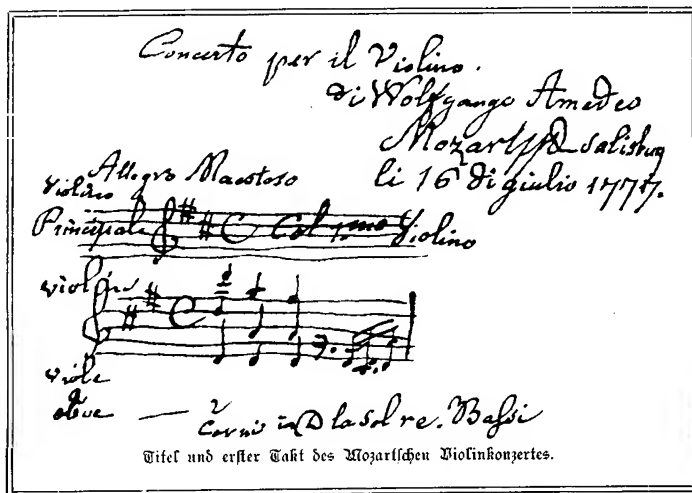 Concerto per il Violino.
di Wolfgango Amadeo
Mozart Salisburg
li 16 di giulio 1777.
Allegro Maestoso
Violino
Principale Col 1mo Violino
violini
viole
2 oboe — 2 Corni in D la sol re. Bassi
Titel und erster Takt des Mozartschen Violinkonzertes.